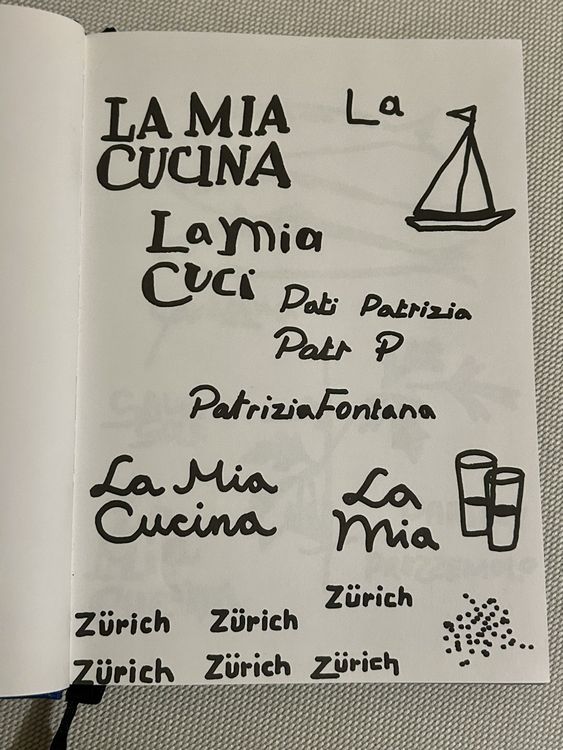 LA MIA
CUCINA
La
La mia
Cuci
Pati Patrizia
Patr P
PatriziaFontana
La Mia
Cucina
La
Mia
Zürich
Zürich Zürich
Zürich Zürich Zürich